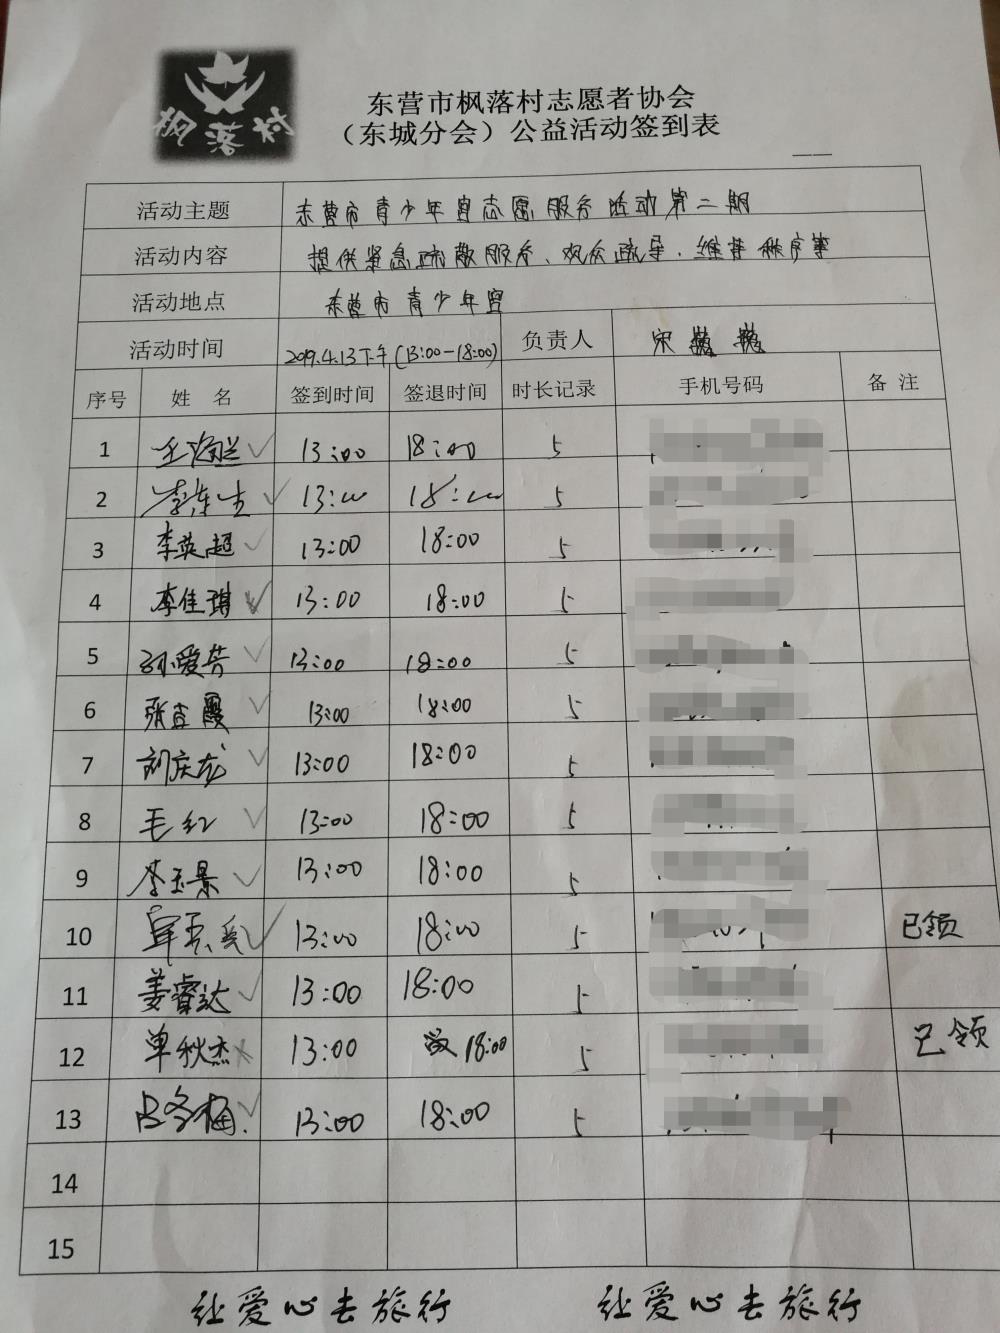 枫落村
东营市枫落村志愿者协会
（东城分会）公益活动签到表
活动主题 东营市青少年宫志愿服务活动第二期
活动内容 提供紧急疏散服务、观众疏导、维持秩序等
活动地点 东营市青少年宫
活动时间 2019.4.13下午(13:00-18:00) 负责人 宋
序号 姓 名 签到时间 签退时间 时长记录 手机号码 备 注
1 王海兰 13:00 18:00 5
2 李东生 13:00 18:00 5
3 李英超 13:00 18:00 5
4 李佳琪 13:00 18:00 5
5 孙爱芳 13:00 18:00 5
6 张吉霞 13:00 18:00 5
7 刘庆龙 13:00 18:00 5
8 毛红 13:00 18:00 5
9 李玉景 13:00 18:00 5
10 13:00 18:00 5 已领
11 姜睿达 13:00 18:00 5
12 单秋杰 13:00 18:00 5 已领
13 吕冬梅 13:00 18:00 5
14
15
让爱心去旅行 让爱心去旅行